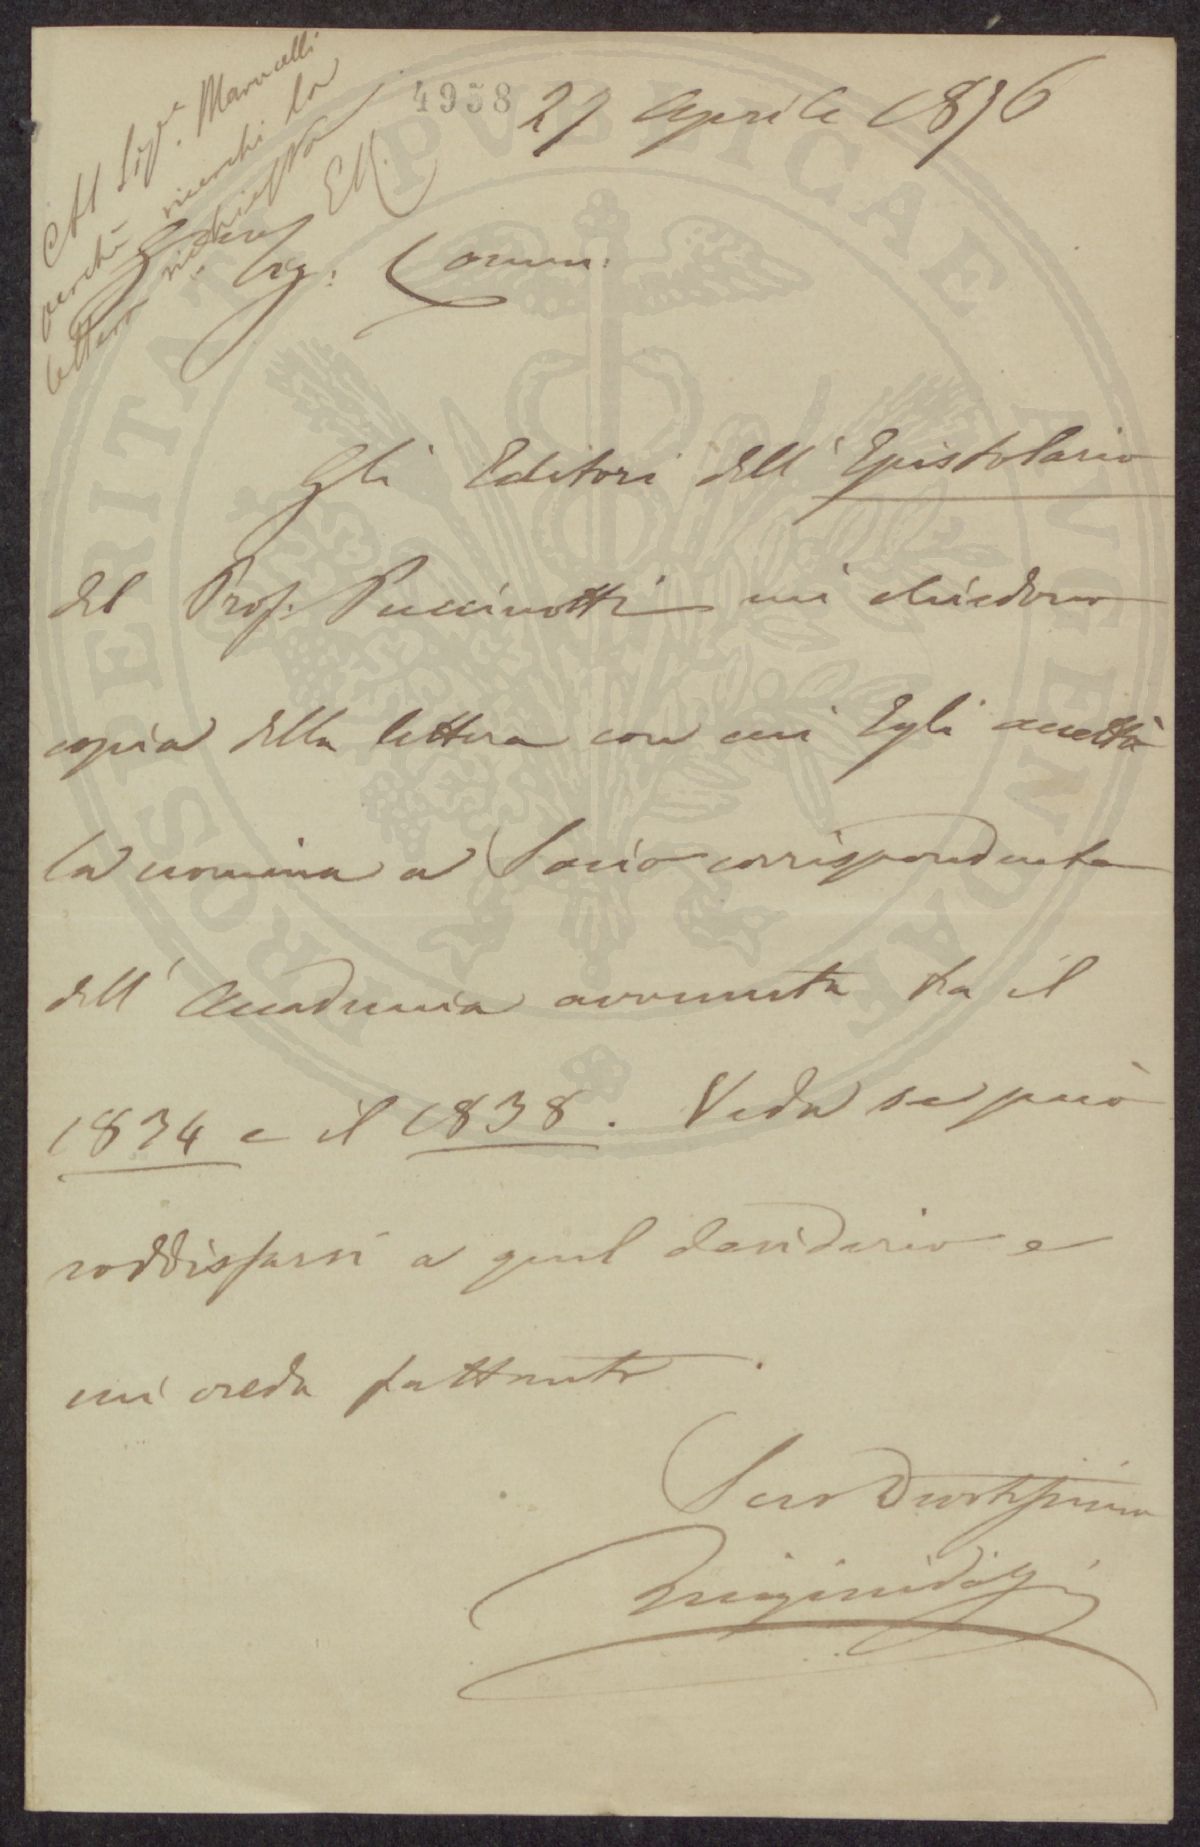 Al Sig.r Marucelli
perché ricerchi la
lettera richiesta
4958
27 Aprile 1876
Sig. Comm:
Gli Editori dell' Epistolario
del Prof. Puccinotti mi chiedono
copia della lettera con cui Egli accettò
la nomina a Socio corrispondente
dell' Accademia avvenuta tra il
1834 e il 1838. Veda se può
soddisfarsi a quel desiderio e
mi creda frattanto
Suo Devotissimo
PROSPERITATI PVBLICAE AVGENDAE